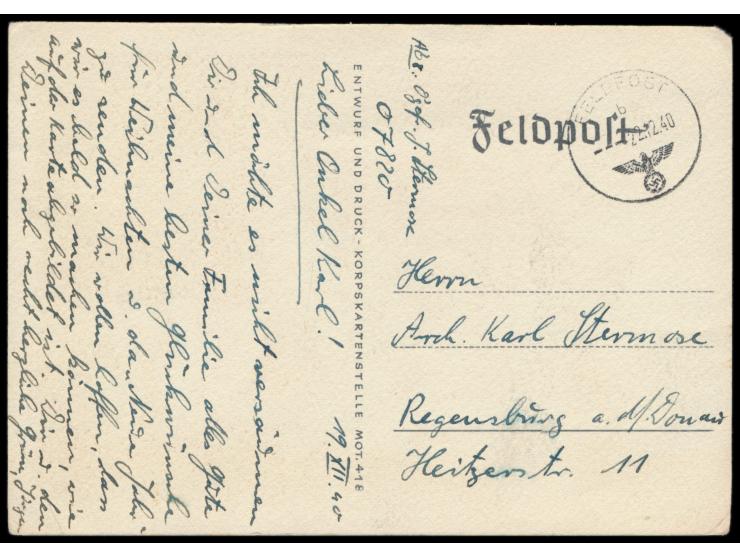 Abs. Ogf. J. Stermose
07820
Feldpost
FELDPOST
b
22.12.40
Herrn
Arch. Karl Stermose
Regensburg a. d/Donau
Heitzerstr. 11
ENTWURF UND DRUCK - KORPSKARTENSTELLE MOT. 418
19.XII.40
Lieber Onkel Karl!
Ich möchte es nicht versäumen
Dir u. Deiner Familie alles Gute
und meine besten Glückwünsche
für Weihnachten u. das Neue Jahr
zu senden. Wir wollen hoffen, dass
wir es bald so machen können, wie
auf der Karte abgebildet ist. Dir u. den
Deinen noch recht herzliche Grüße, Jürgen